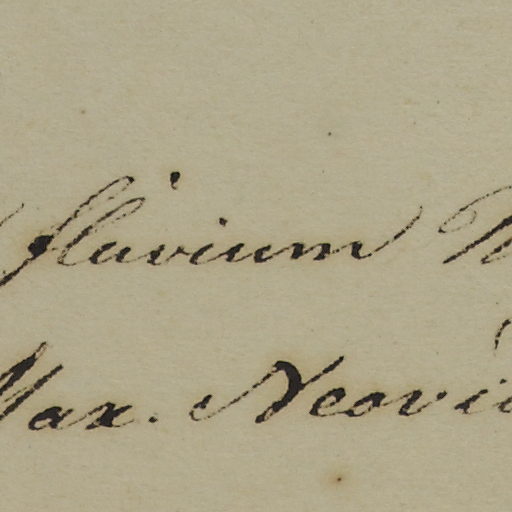 fluvium
Max. Neovi